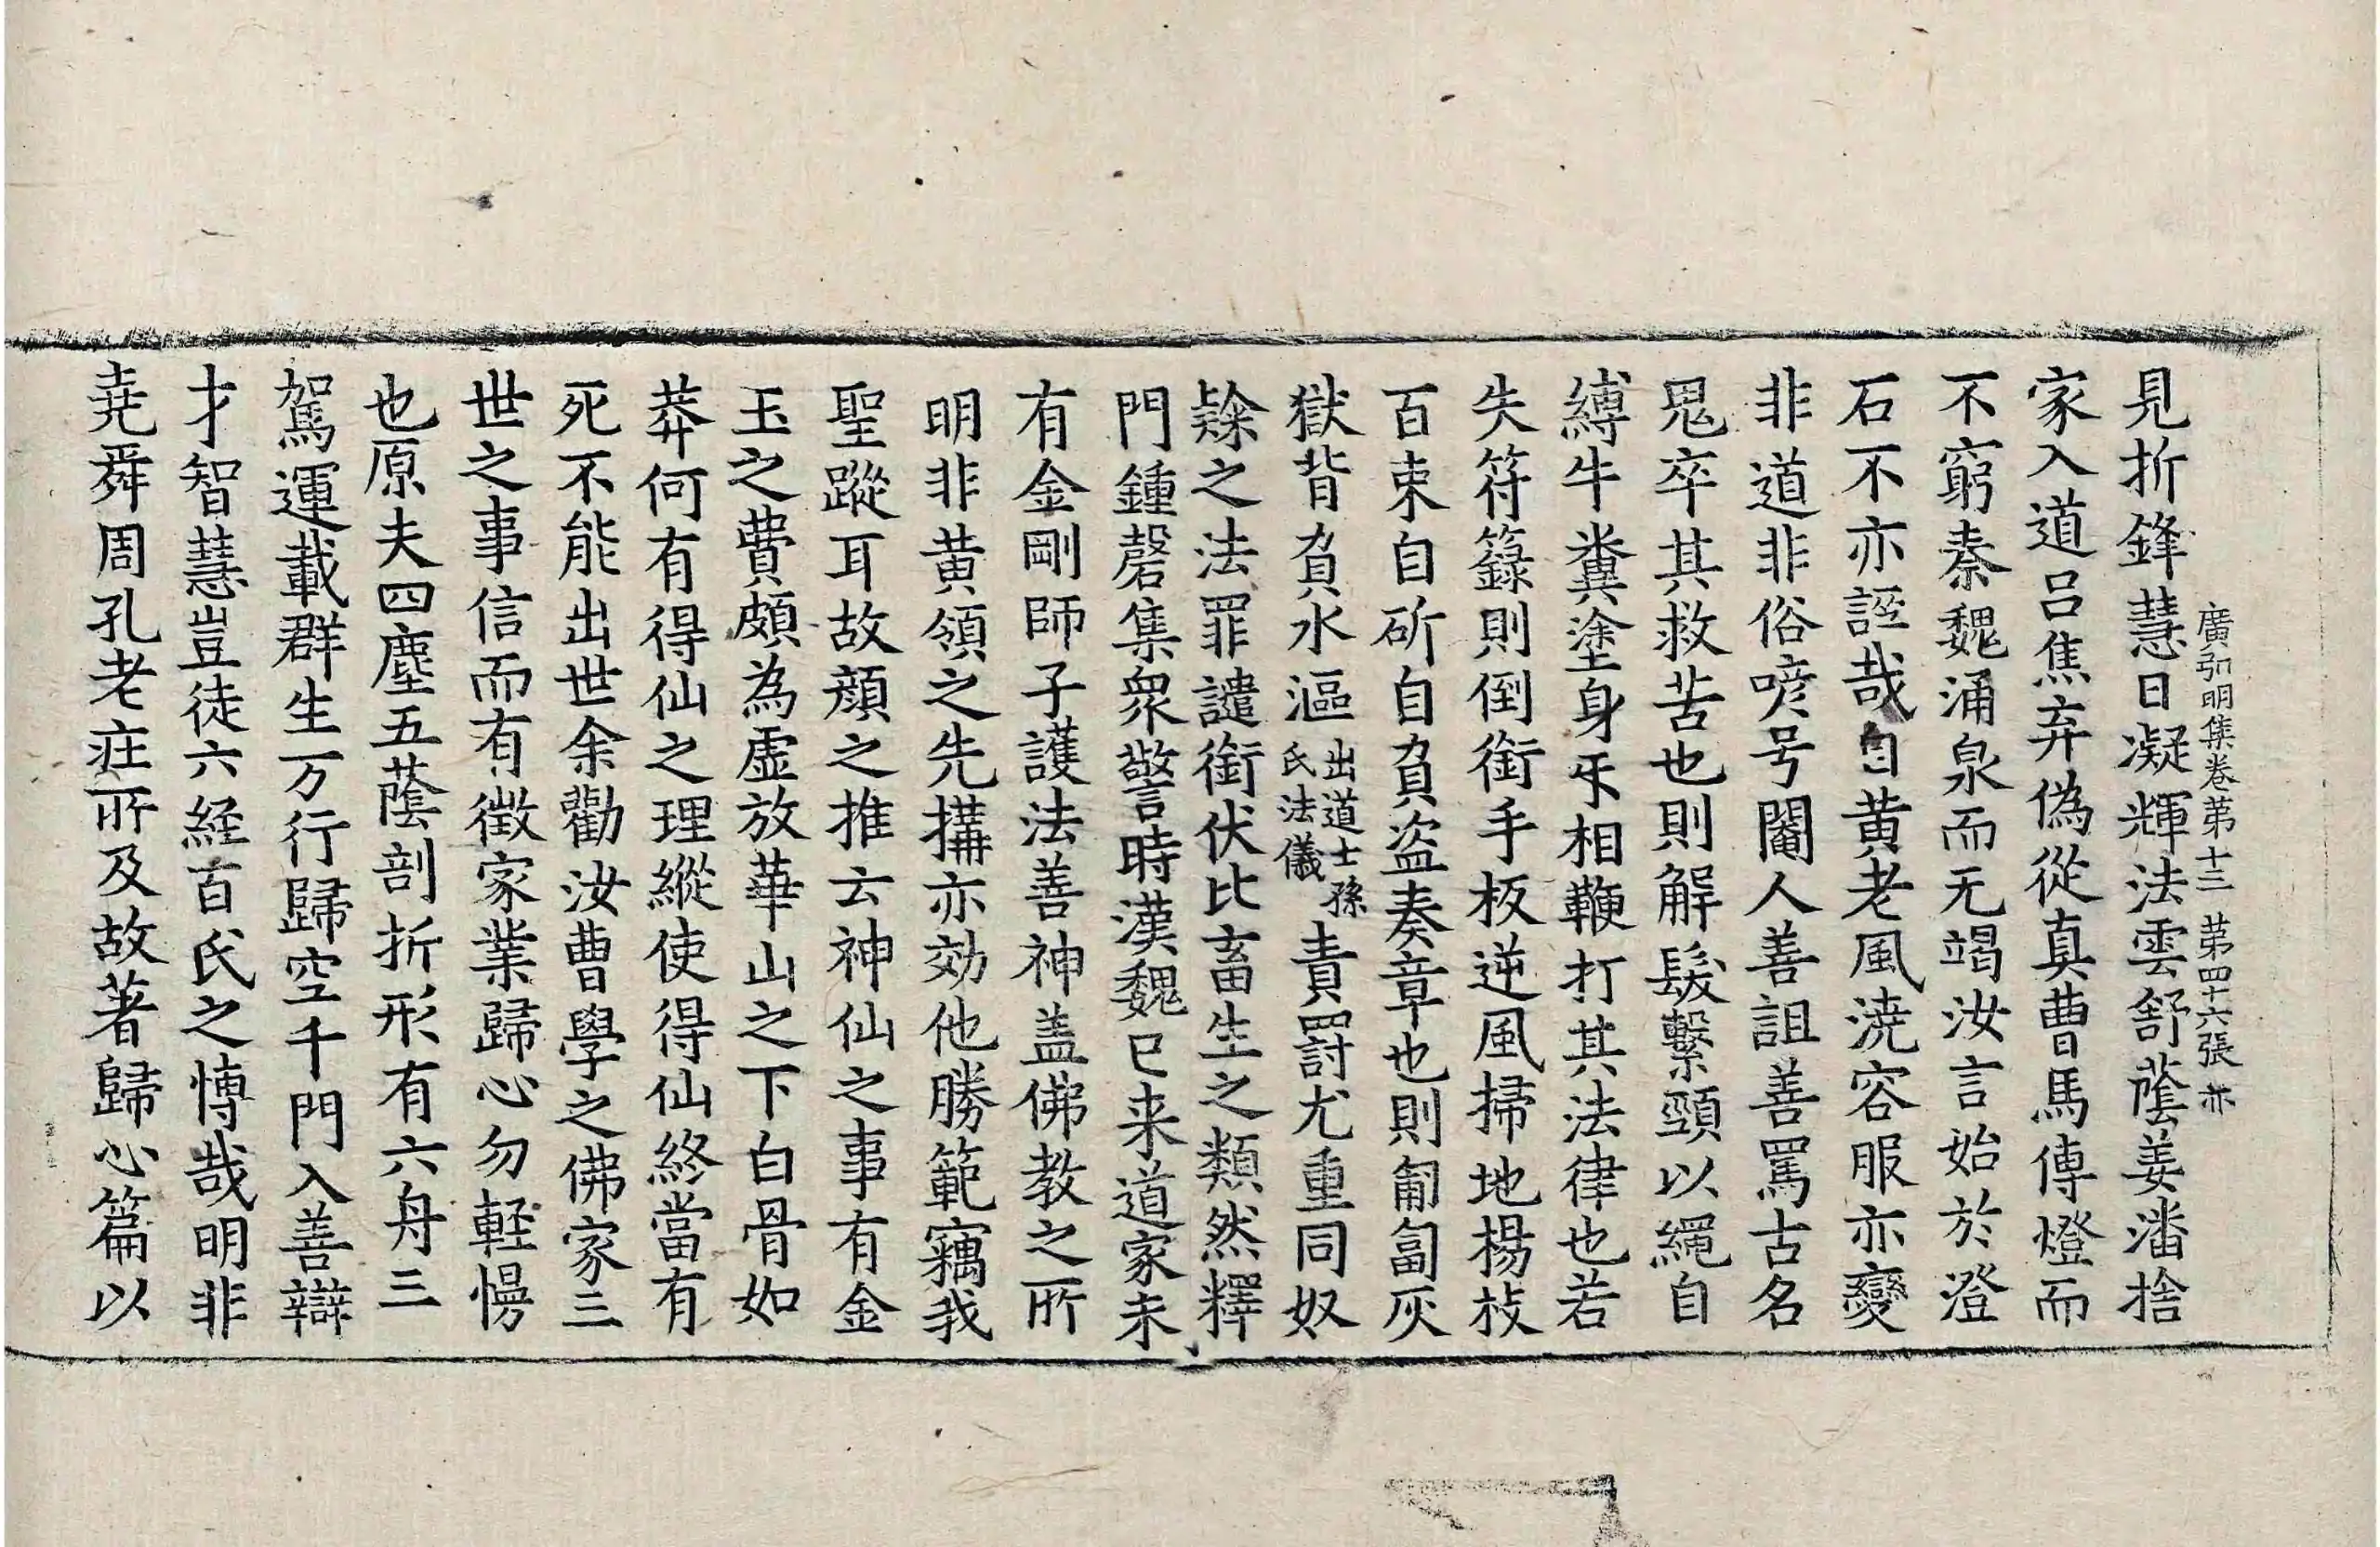 廣弘明集卷第十三 第四十六張 亦
見折鋒慧日凝輝法雲舒䕃姜潘捨
家入道呂焦弃偽從真曹馬傳燈而
不窮秦魏涌泉而无竭汝言始於澄
石不亦誣哉自黄老風澆容服亦變
非道非俗喭号閹人善詛善罵古名
鬼卒其救苦也則解髮繫頸以繩自
縛牛糞塗身㸦相鞭打其法律也若
失符籙則倒銜手板逆風掃地楊枝
百束自斫自負盜奏章也則匍匐灰
獄背負水漚出道士孫氏法儀責罰尤重同奴
𨽻之法罪譴銜伏比畜生之類然釋
門鍾磬集衆警時漢魏已来道家未
有金剛師子護法善神盖佛教之所
明非黄領之先搆亦効他勝範竊我
聖蹤耳故顔之推云神仙之事有金
玉之費頗為虚放華山之下白骨如
莽何有得仙之理縱使得仙終當有
死不能出世余勸汝曹學之佛家三
世之事信而有徵家業歸心勿輊慢
也原夫四塵五䕃剖折形有六舟三
駕運載群生万行歸空千門入善辯
才智慧豈徒六経百氏之愽哉明非
尭舜周孔老疘所及故著歸心篇以